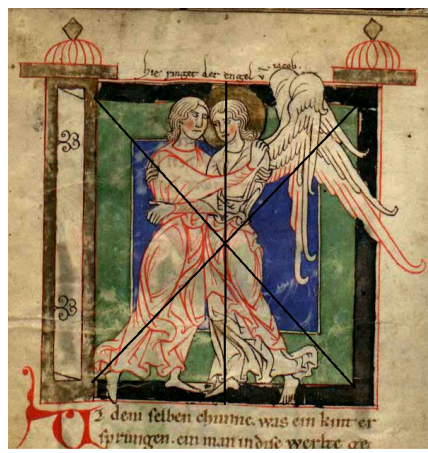 hie ringet der engel v̄ iacob.
Uz dem selben chunne. was ein kint er
sprungen. ein man in dise werlte ge